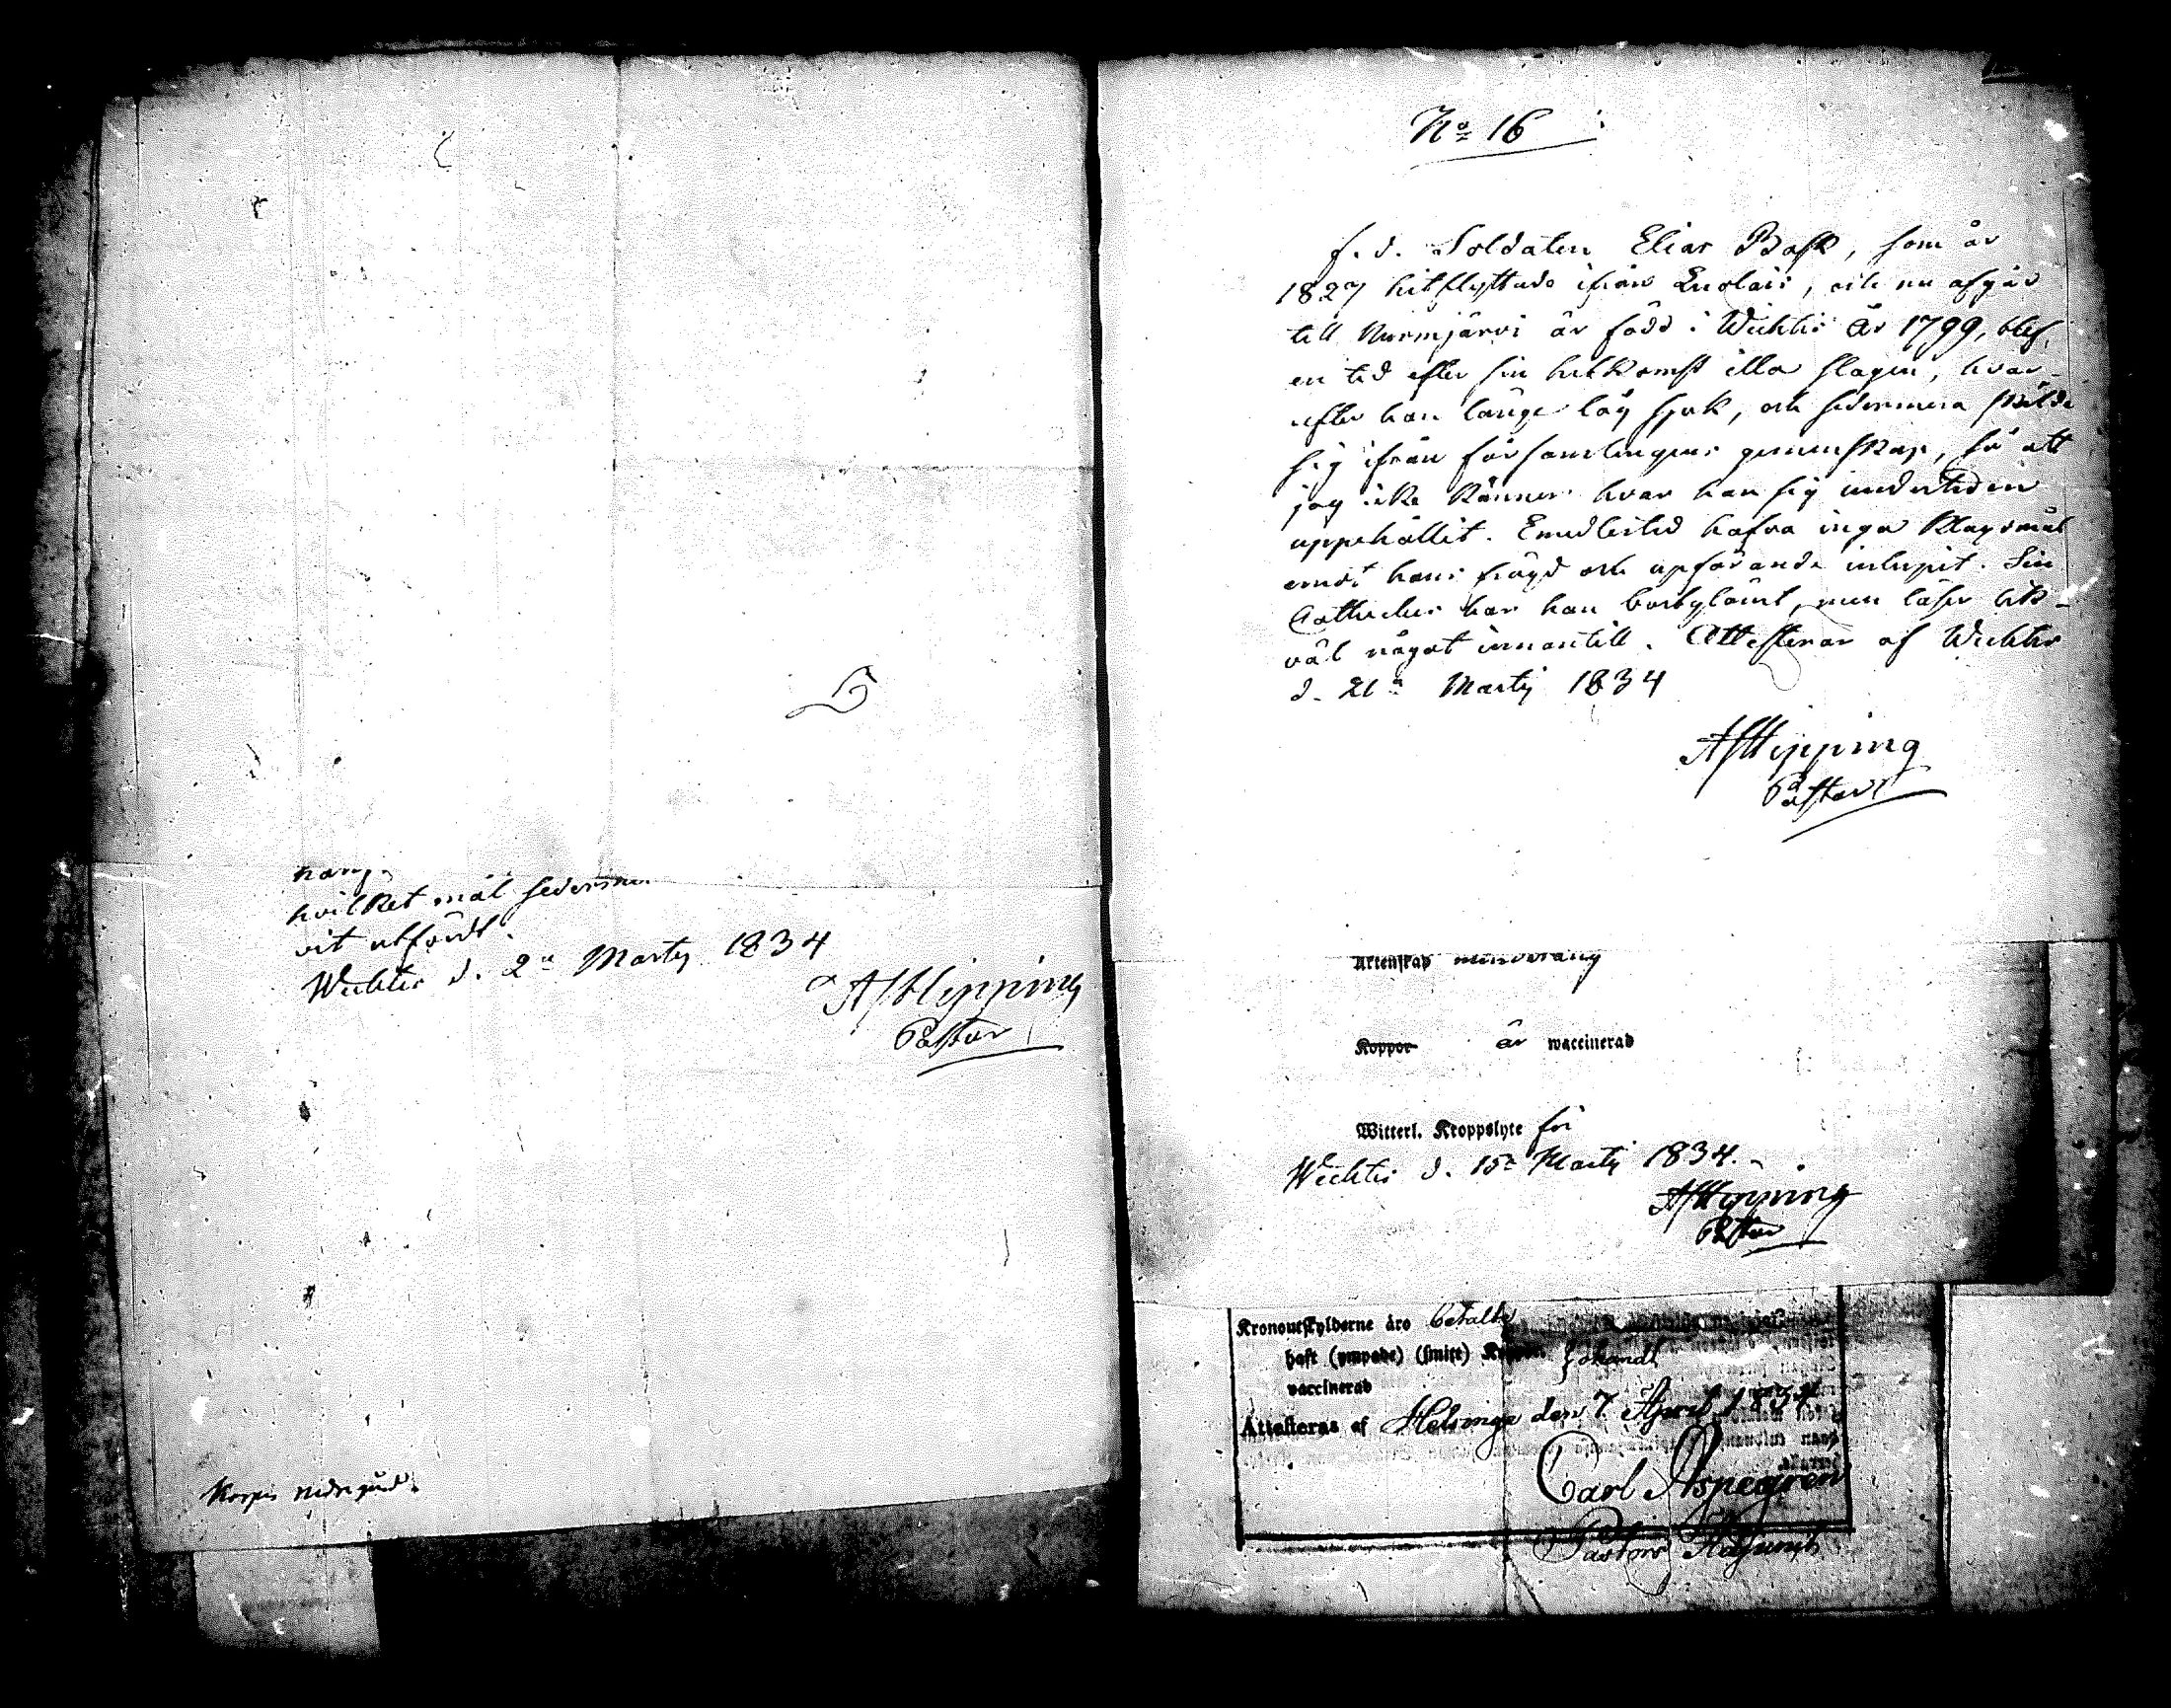 hvilket mål sedermera
vit utfördt.
Wichtis d. 2a Martij 1834
AJHipping
Pastor
No 16
f. d. Soldaten Elias Bask, som år
1827 hitflyttade ifrån Enolais, och nu afgår
till Nurmjärvi är född i Wichtis år 1799, blef
en tid efter sin hitkomst illa slagen, hvar-
efter han länge låg sjuk, och sedermera skilde
sig ifrån församlingens gemenskap, så att
jag icke känner hvar han sig undertiden
uppehållit. Emedlertid hafva inga klagomål
emot hans frägd och upförande inlupit. Sin
Catheches har han bortglömt, men läser lik-
väl något innantill. Attesterar af Wichtis
d. 21a Martij 1834
AJHipping
Pastor
Äktenskap minderårig
Koppor är waccinerad
Witterl. Kroppslyte fri
Wichtis d. 15a Martij 1834.
AJHipping
Pastor
Kronoutskylderne äro betalte
haft (ympade) (smitt) Koppor
vaccinerad
Attesteras af Helsinge den 7 April 1834
Carl Aspegren
Pastors